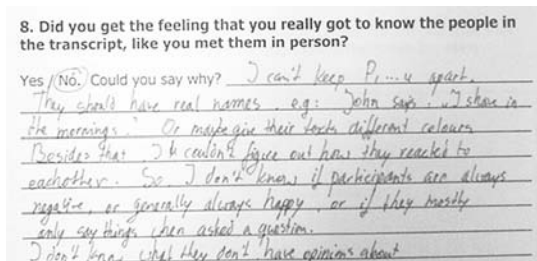 8. Did you get the feeling that you really got to know the people in
the transcript, like you met them in person?
Yes / No. Could you say why? I can't keep P1...4 apart.
They should have real names. e.g: John says: "I shave in
the mornings." Or maybe give their texts different colours
Besides that I couldn't figure out how they reacted to
eachother. So I don't know if participants are always
negative, or generally always happy, or if they mostly
only say things when asked a question.
I don't know what they don't have opinions about